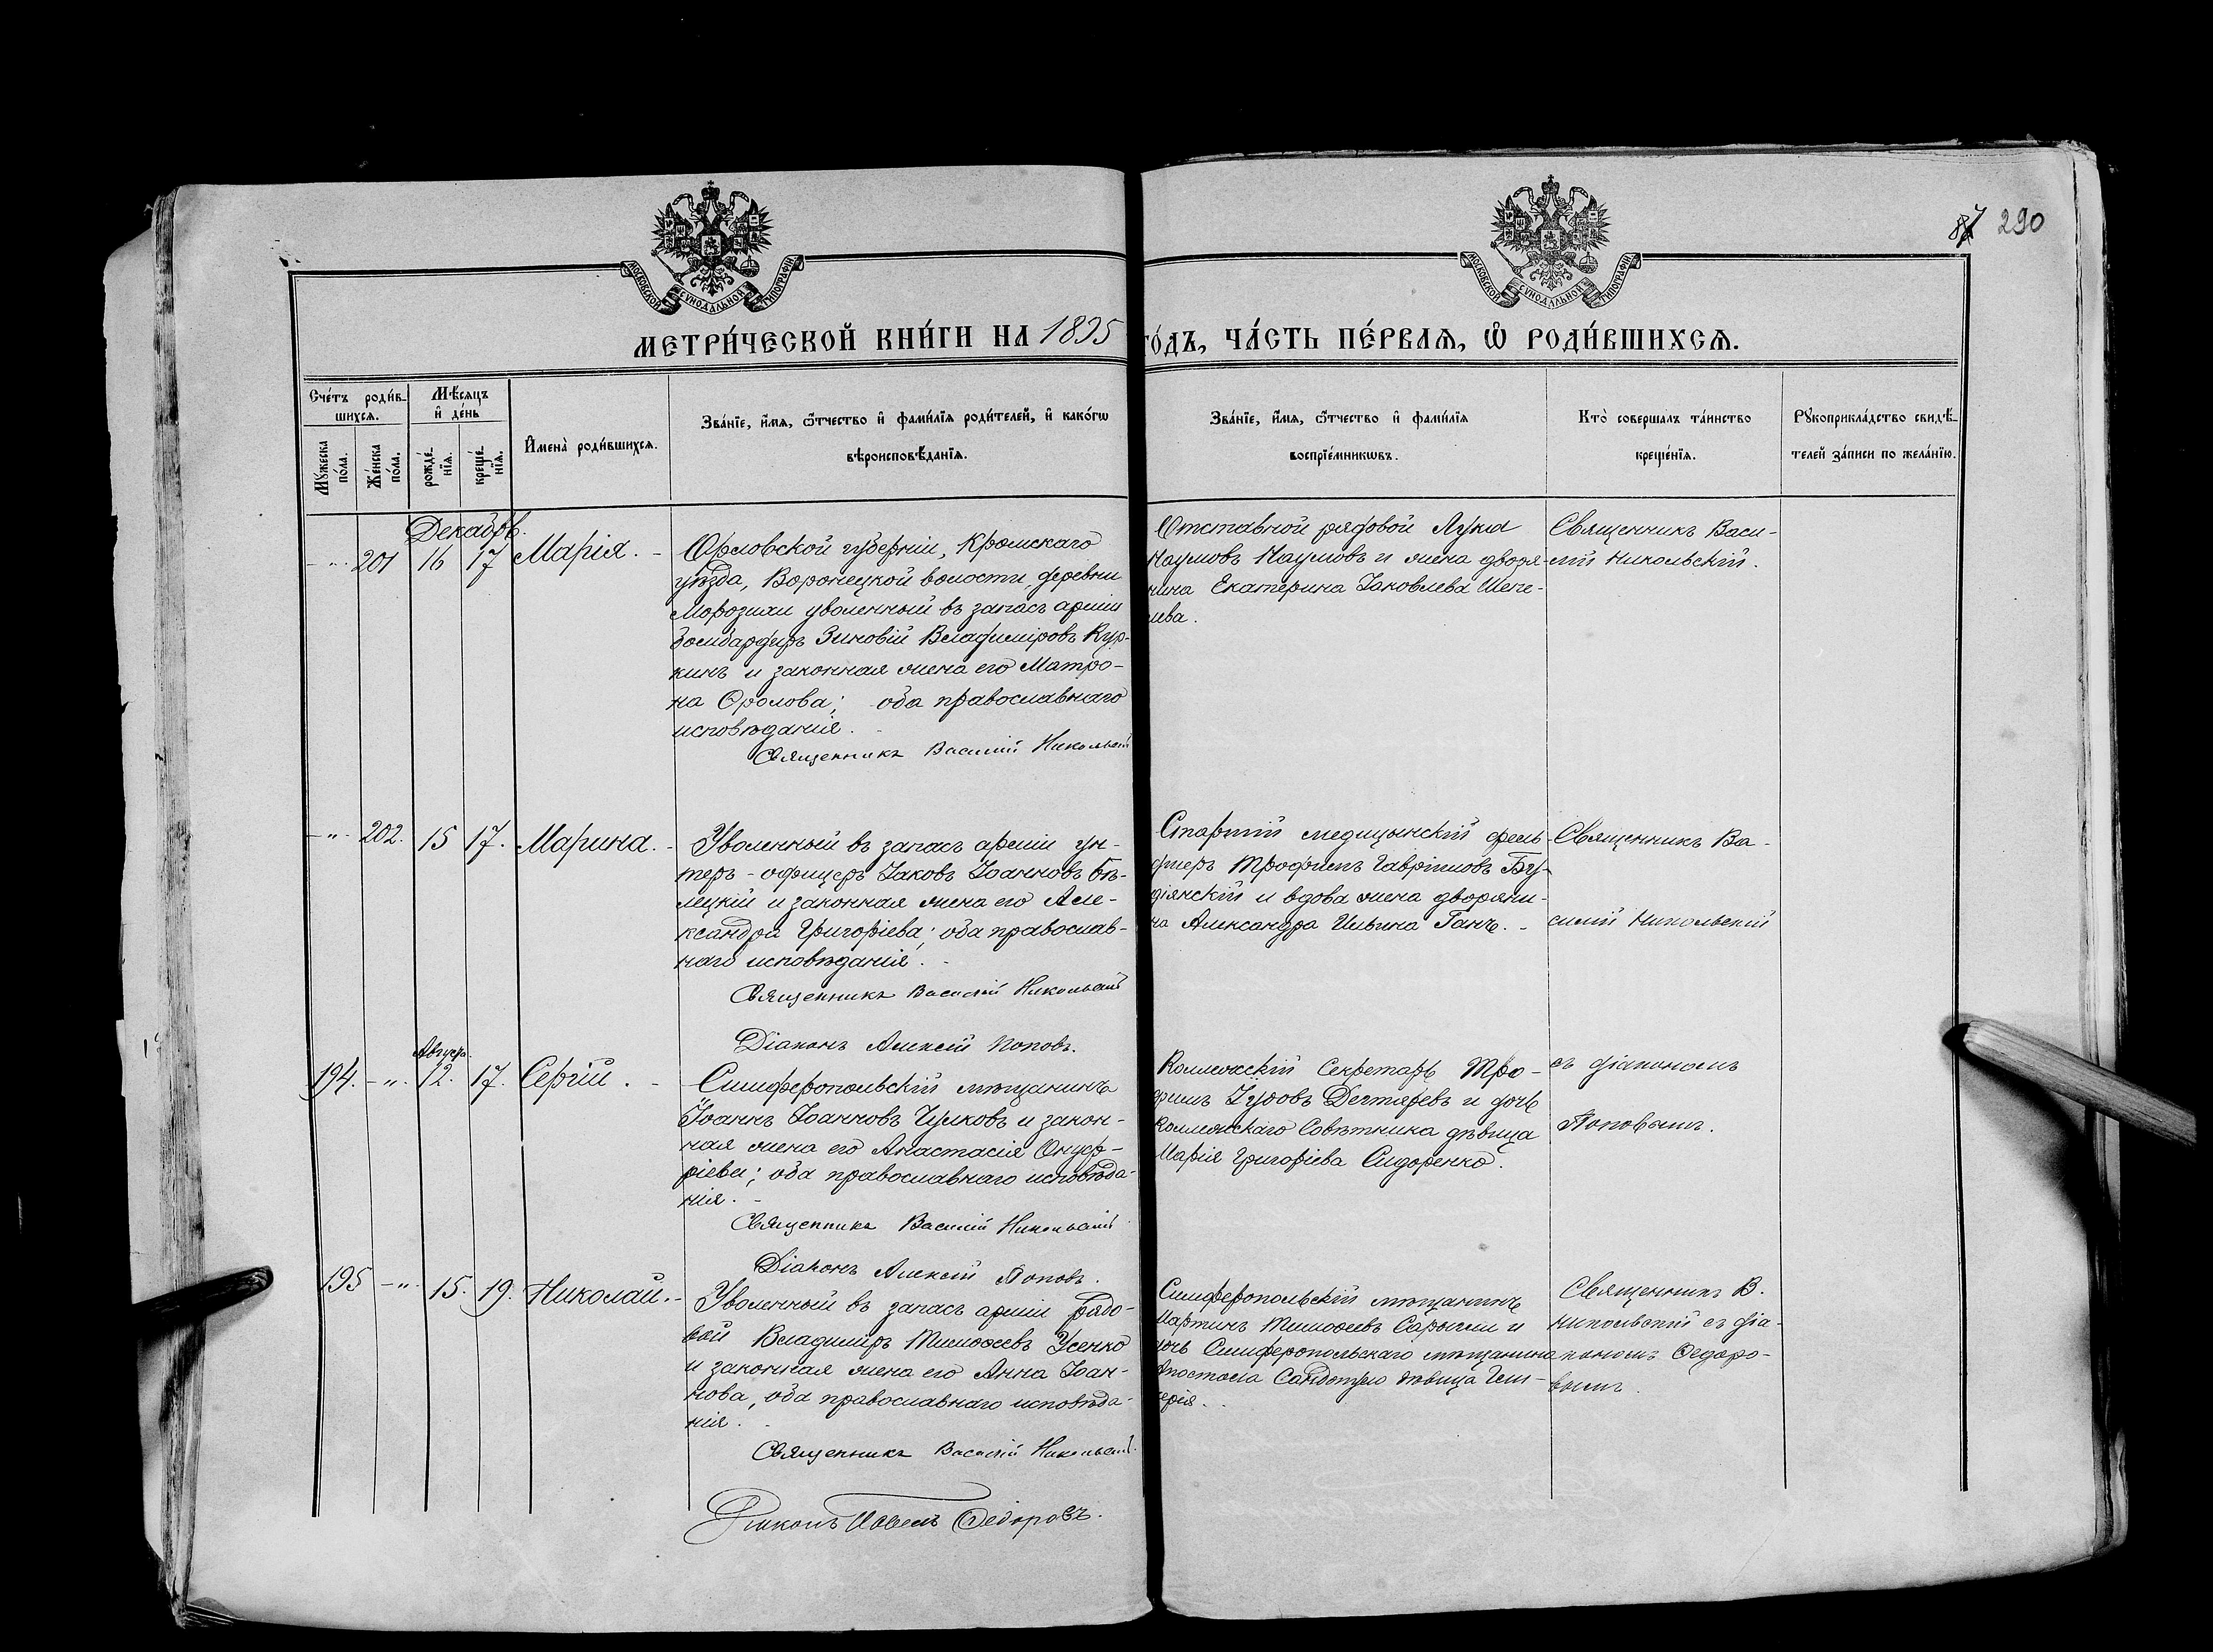 87 290
МОСКОВСКОЙ СѴНОДАЛЬНОЙ ТИПОГРАФІИ
МОСКОВСКОЙ СѴНОДАЛЬНОЙ ТИПОГРАФІИ
МЕТРИ́ЧЕСКОЙ КНИ́ГИ НА 1895 ГО́ДЪ, ЧА́СТЬ ПЕ́РВАѦ, Ѡ҆ РОДИ́ВШИХСѦ.
Сче́тъ роди́в-
шихся.
Мѣ́сяцъ
и҆ де́нь
Мꙋ́жеска
по́ла.
Же́нска
по́ла.
рожде́-
нїѧ.
креще́-
нїѧ.
И҆мена̀ роди́вшихсѧ.
Зва́нїе, и҆́мѧ, ѻ҆́тчество и҆ фами́лїѧ роди́телей, и҆ како́гѡ
вѣроисповѣ́данїѧ.
Зва́нїе, и҆́мѧ, ѻ҆́тчество и҆ фами́лїѧ
воспрїе́мникѡвъ.
Кто̀ соверша́лъ та́инство
креще́нїѧ.
Рꙋкоприкла́дство свидѣ́-
телей за́писи по жела́нїю.
Декабрь.
- " - 201 16 17 Марія. -
Орловской губерніи, Кромскаго
уѣзда, Воронецкой волости, деревни
Морозихи уволенный въ запасъ арміи
бомбардиръ Зиновій Владиміровъ Кур-
кинъ и законная жена его Матро-
на Фролова; оба православнаго
исповѣданія.
Священникъ Василій Никольскій
Отставной рядовой Лука
Наумовъ Наумовъ и жена дворя-
нина Екатерина Іаковлева Шепе-
лева.
Священникъ Васи-
лій Никольскій.
- " - 202. 15 17. Марина. -
Уволенный въ запасъ арміи ун-
теръ-офицеръ Іаковъ Іоанновъ Бѣ-
лецкій и законная жена его Але-
ксандра Григорьева; оба православ-
наго исповѣданія. -
Священникъ Василій Никольскій
Діаконъ Алексій Поповъ.
Старшій медицынскій фель-
дшеръ Трофимъ Гавріиловъ Бу-
діянскій и вдова жена дворяни-
на Александра Ильина Ганъ. -
Священникъ Ва-
силій Никольскій
Августа
194. - " - 12. 17. Сергій. -
Симферопольскій мѣщанинъ
Іоаннъ Іоанновъ Чулковъ и закон-
ная жена его Анастасія Онуф-
ріева; оба православнаго исповѣда-
нія. -
Священникъ Василій Никольскій
Діаконъ Алексій Поповъ.
Коллежскій Секретарь Тро-
фимъ Дегтяревъ и дочь
Коллежскаго Совѣтника дѣвица
Марія Григоріева Сидоренко.
съ діакономъ
Поповымъ.
195 - " - 15. 19. Николай. -
Уволенный въ запасъ арміи рядо-
вой Владиміръ Тимоѳеевъ Усенко
и законная жена его Анна Іоан-
нова, оба православнаго исповѣда-
нія.
Священникъ Василій Никольскій
Діаконъ Павелъ Ѳедоровъ.
Симферопольскій мѣщанинъ
Мартинъ Тимоѳеевъ и
дочь Симферопольскаго мѣщанина
Апостола дѣвица
Священникъ В.
Никольскій съ діа-
кономъ Ѳедоро-
вымъ.